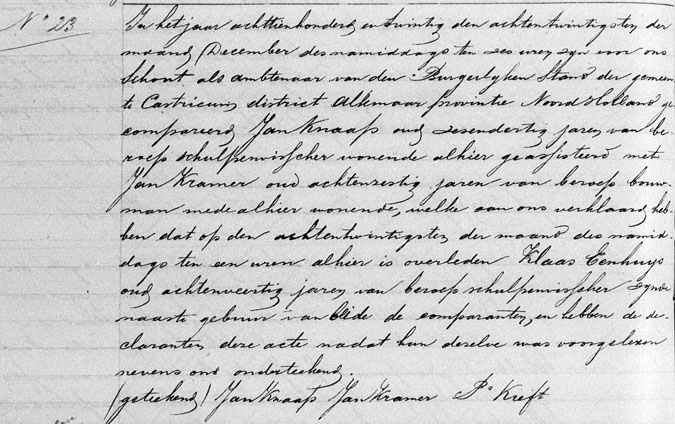 N° 23
In het jaar achttienhonderd en twintig den achtentwintigsten der
maand December des namiddags ten zes uren zyn voor ons
Schout als ambtenaar van den Burgerlyken Stand der gemeen-
te Castricum, district Alkmaar provintie Noord Holland ge-
compareerd, Jan Knaap oud zesendertig jaren van be-
roep schulpenvisscher wonende alhier geassisteerd met
Jan Kramer oud achtenzestig jaren van beroep bouw-
man mede alhier wonende, welke aan ons verklaard heb-
ben dat op den achtentwintigsten der maand des namid-
dags ten een uren alhier is overleden Klaas Eenhuys
oud achtenveertig jaren van beroep schulpenvisscher zynde
naaste gebuur van beide de comparanten, en hebben de de-
claranten deze acte nadat hun dezelve was voorgelezen
nevens ons onderteekend.
(geteekend) Jan Knaap Jan Kramer P.s Kieft